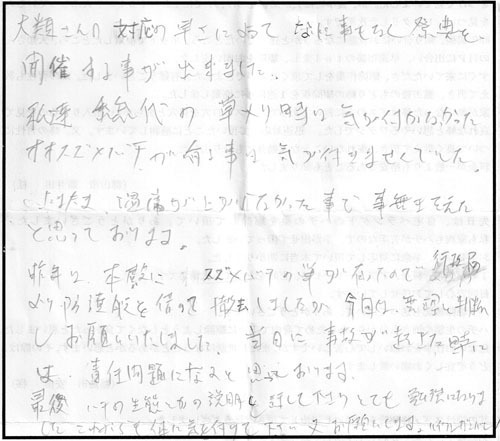 大類さんの対応の早さに依って なに事もなく祭典を、
開催する事が出来ました。
私達 総代の草メリ時は気が付かなかった
オオスズメバチが有る事は気が付ませんでした
たまたま 温度が上がらなかった事で、事無きをえた
と思っております。
昨年は、本殿に スズメバチの巣が有ったので、
より防護服を借りて撤去しましたが、今回は、無理と判断
しお願いいたしました。当日に事故が起きた時に
は、責任問題になると思っております。
最後 ハチの生態などの説明を話して下さりとても勉強になりま
した これからも体に気を付けて下さい 又お願いします。